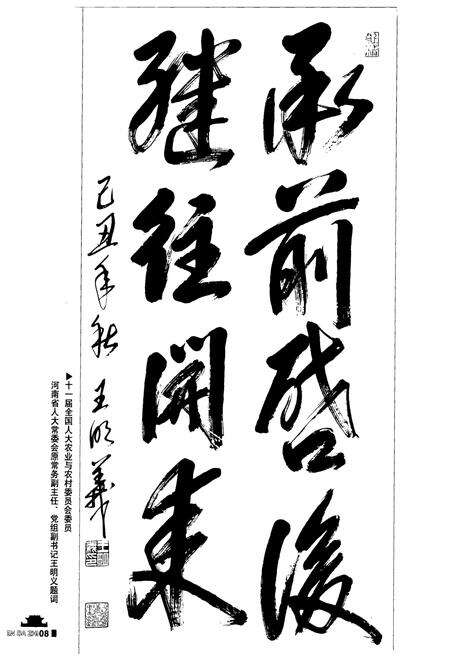 承前啓後
継往開来
己丑年秋 王明義
▶十一届全国人大农业与农村委员会委员
河南省人大常委会原常务副主任、党组副书记王明义题词
08